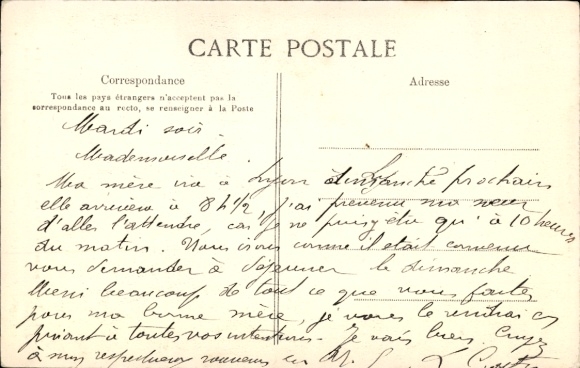 CARTE POSTALE
Correspondance
Tous les pays étrangers n'acceptent pas la
correspondance au recto, se renseigner à la Poste
Adresse
Mardi soir
Mademoiselle
Ma mère ira à Lyon dimanche prochain
elle arrivera à 8h 1/2, j'ai prévenu ma sœur
d'aller l'attendre, car je ne puis y être qu'à 10 heures
du matin. Nous irons comme il était convenu
vous demander à déjeuner le dimanche
Merci beaucoup de tout ce que vous faites
pour ma bonne mère, je vous le rendrai en
priant à toutes vos intentions. Je vais bien. Croyez
à mes respectueux souvenirs en